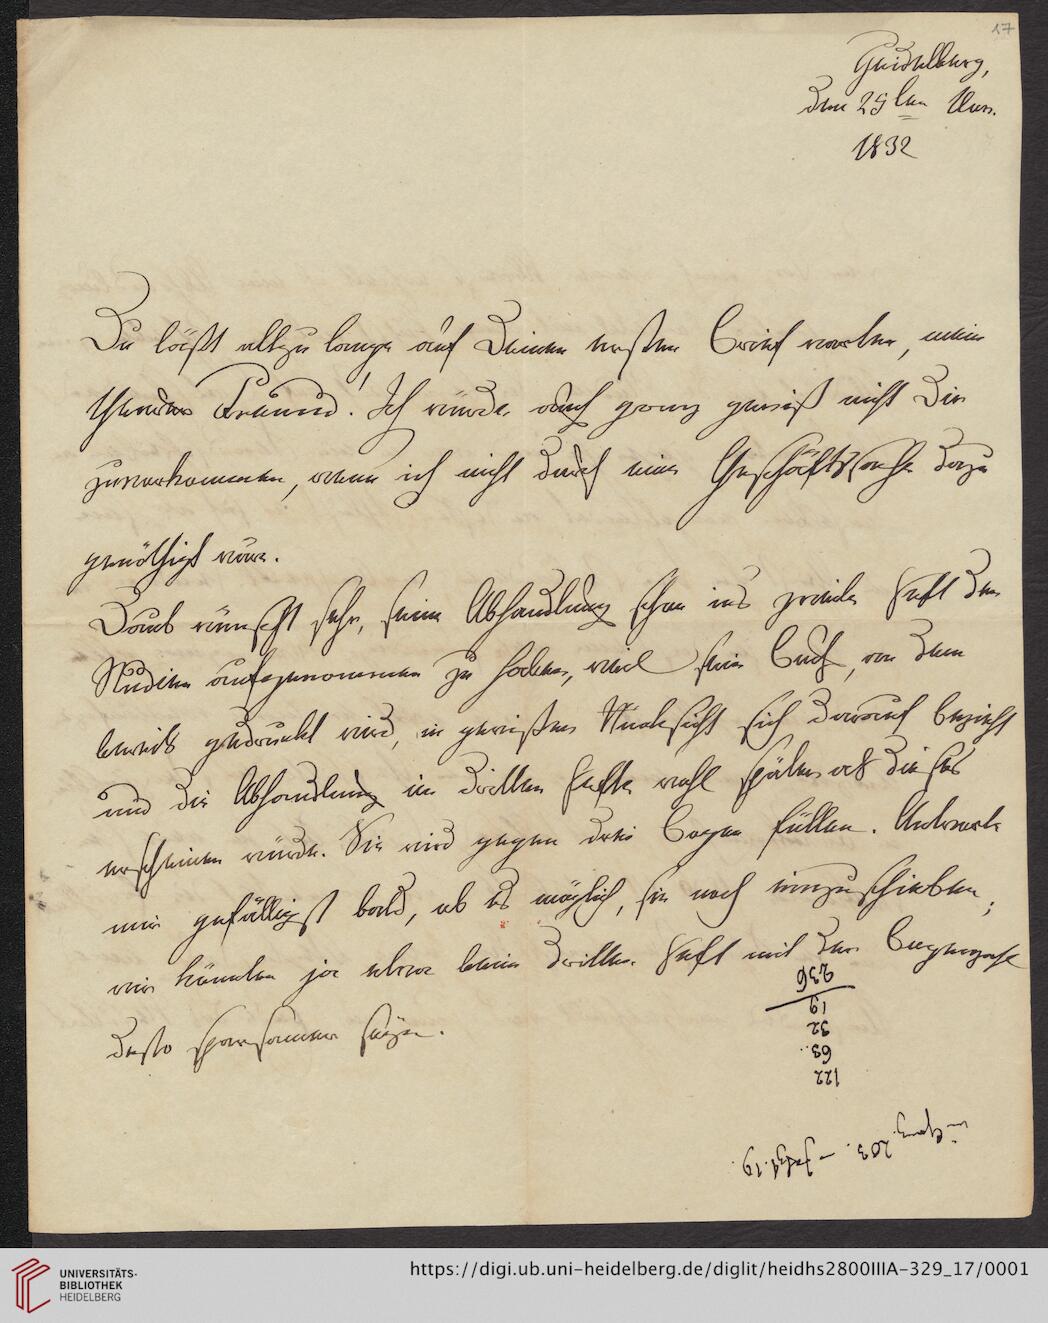 17
Heidelberg,
den 29ten Nov.
1832
Du läßt allzu lange auf Deinen ersten Brief warten, mein
theurer Freund! Ich würde auch ganz gewiß nicht Dir
zuvorkommen, wenn ich nicht durch eine Geschäftssache dazu
genöthigt wäre.
Daub wünscht sehr, seine Abhandlung schon ins zweite Heft der
Studien aufgenommen zu haben, weil sein Buch, an dem
bereits gedruckt wird, in gewisser Rücksicht sich darauf bezieht
und die Abhandlung im dritten Hefte wohl später als dieses
erscheinen würde. Sie wird gegen drei Bogen füllen. Antworte
mir gefälligst bald, ob es möglich, sie noch einzuschieben;
wir könnten ja etwa beim dritten Heft mit der Bogenzahl
desto sparsamer seyn.
122
63
32
19
236
203.
19.
UNIVERSITÄTS-
BIBLIOTHEK
HEIDELBERG
https://digi.ub.uni-heidelberg.de/diglit/heidhs2800IIIA-329_17/0001